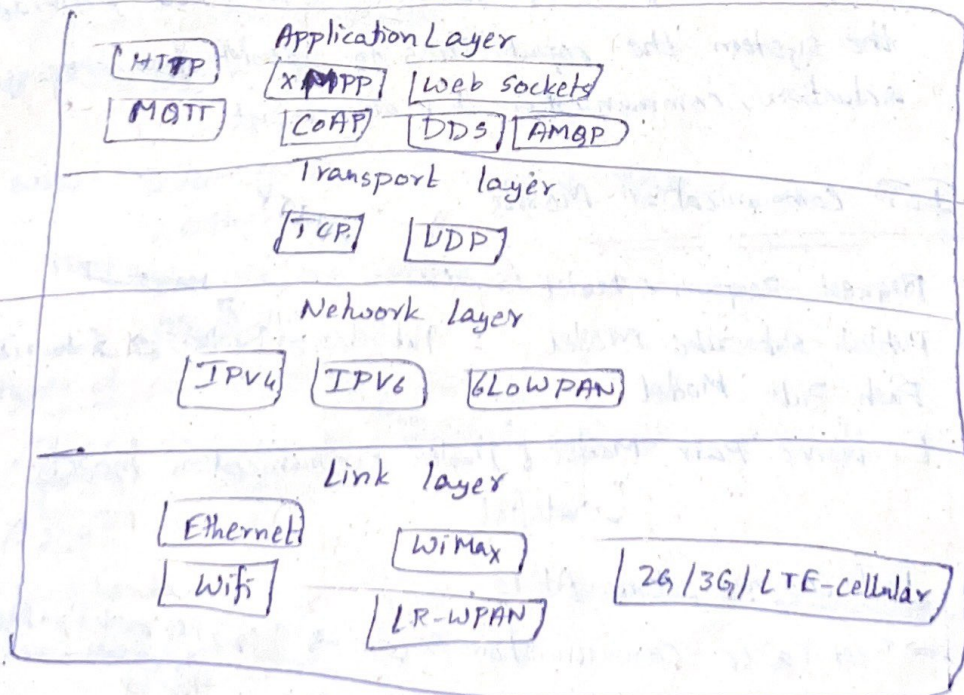 Application Layer
HTTP
XMPP Web Sockets
MQTT CoAP DDS AMQP
Transport layer
TCP. UDP
Network Layer
IPV4 IPV6 6LoWPAN
Link layer
Ethernet WiMax
Wifi 2G/3G/LTE-cellular
LR-WPAN